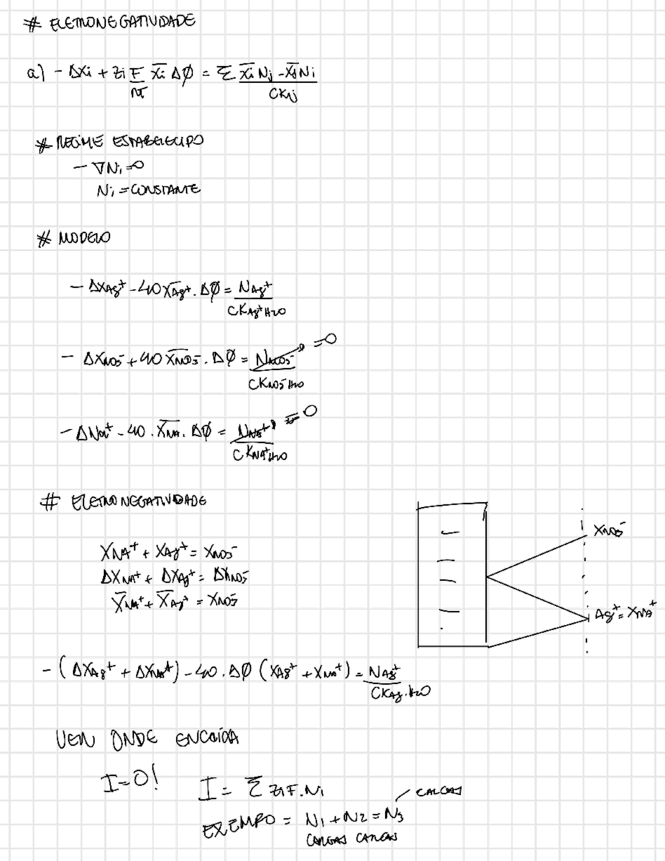 # ELETRONEGATIVIDADE
a) - Δxi + zi F/RT x̄i Δφ = Σ x̄i Nj - x̄j Ni / CKij
# REGIME ESTABELECIDO
- ∇Ni = 0
Ni = CONSTANTE
# MODELO
- ΔXAg+ - 40 X̄Ag+ . Δφ = NAg+ / CKAg+H2O
- ΔXNO3- + 40 X̄NO3- . Δφ = NNO3- / CKNO3-H2O = 0
- ΔNa+ - 40 . X̄Na+ . Δφ = NNa+ / CKNa+H2O = 0
# ELETRONEGATIVIDADE
XNA+ + XAg+ = XNO3-
ΔXNA+ + ΔXAg+ = ΔXNO3-
X̄NA+ + X̄Ag+ = XNO3-
XNO3-
Ag+ = XNA+
- (ΔXAg+ + ΔXNA+) - 40 . Δφ (XAg+ + XNA+) = NAg+ / CKAg.H2O
VER ONDE ENCAIXA
I = 0! I = Σ ziF.Ni
CARGAS
EXEMPRO = N1 + N2 = N3
CARGAS CARGAS